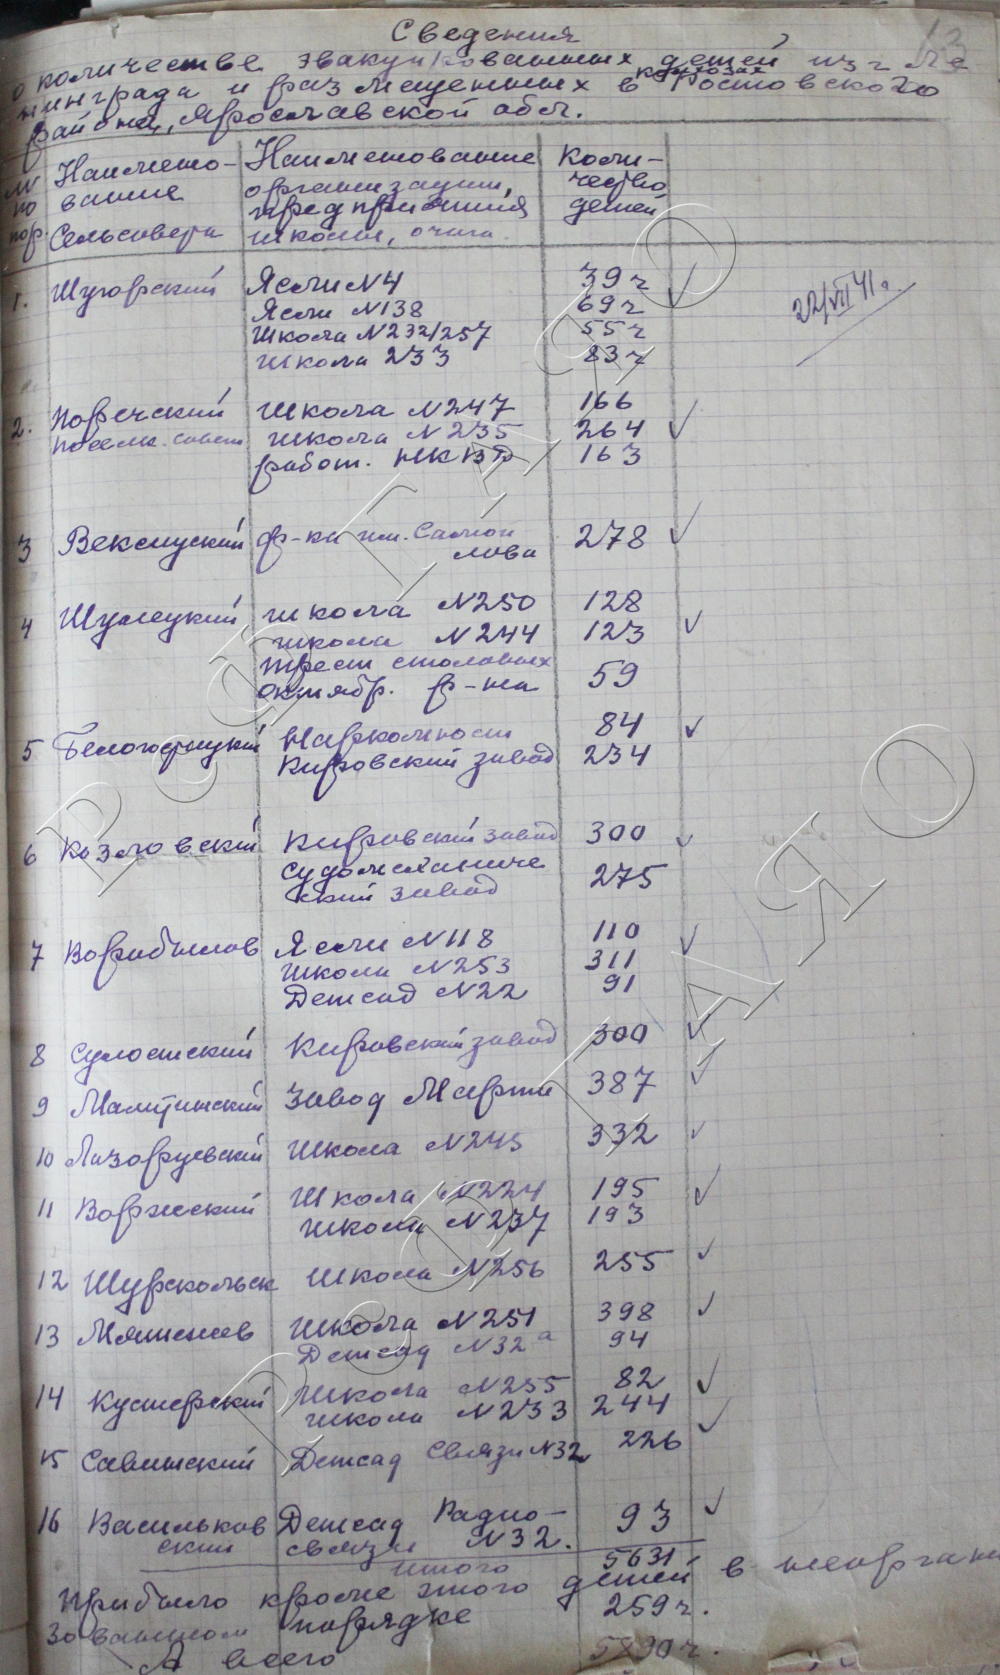 Сведения
о количестве эвакуированных детей из г Ле
нинграда и размещенных в колхозах Ростовского
района, Ярославской обл.
№ по пор.
Наимено-
вание
Сельсовета
Наименование
организации,
предприятия
школы, очага.
Коли-
чество
детей
22/VII 41 г.
1. Шугорский Ясли N4 39 ч
Ясли N138 69 ч
Школа N232/257 55 ч
Школа 233 83 ч
2. Поречский школа N247 166
поселк. совет школа N235 264
работ. НКВД 163
3 Вексицкий ф-ка им. Самой
лова 278
4 Шулецкий школа N250 128
школа N244 123
трест столовых
октябр. р-на 59
5 Белогостицкий Наркомпост 84
Кировский завод 234
6 Козловский Кировский завод 300
судомеханиче
ский завод 275
7 Воробылов Ясли N118 110
школа N253 311
Детсад N22 91
8 Сулостский Кировский завод 300
9 Малитинский Завод Марти 387
10 Лазорцевский Школа N245 332
11 Воржский Школа N224 195
школа N237 193
12 Шурскольск Школа N256 255
13 Мятежев Школа N251 398
Детсад N32а 94
14 Кустерский Школа N255 82
школа N233 244
15 Савинский Детсад Связи N32 226
16 Васильков Детсад Радио-
ский связи N32. 93
итого 5631
Прибыло кроме этого детей в неоргани
зованном порядке 259 ч.
А всего 5890 ч.
РОСТАЯО